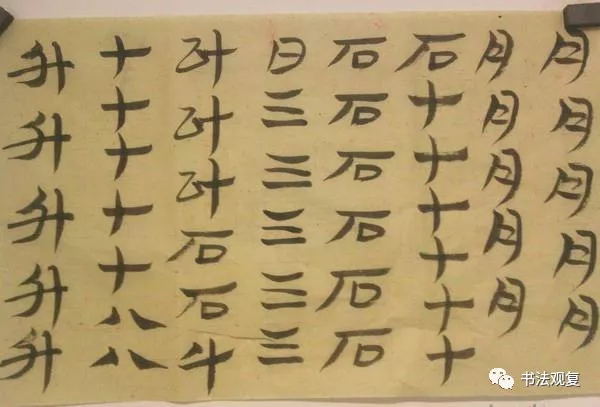 月月月月月
月月月月月
石十十十十十十
石石石石石石
日三三三三三
计计计石石斗
十十十十十八八
升升升升升
书法观复